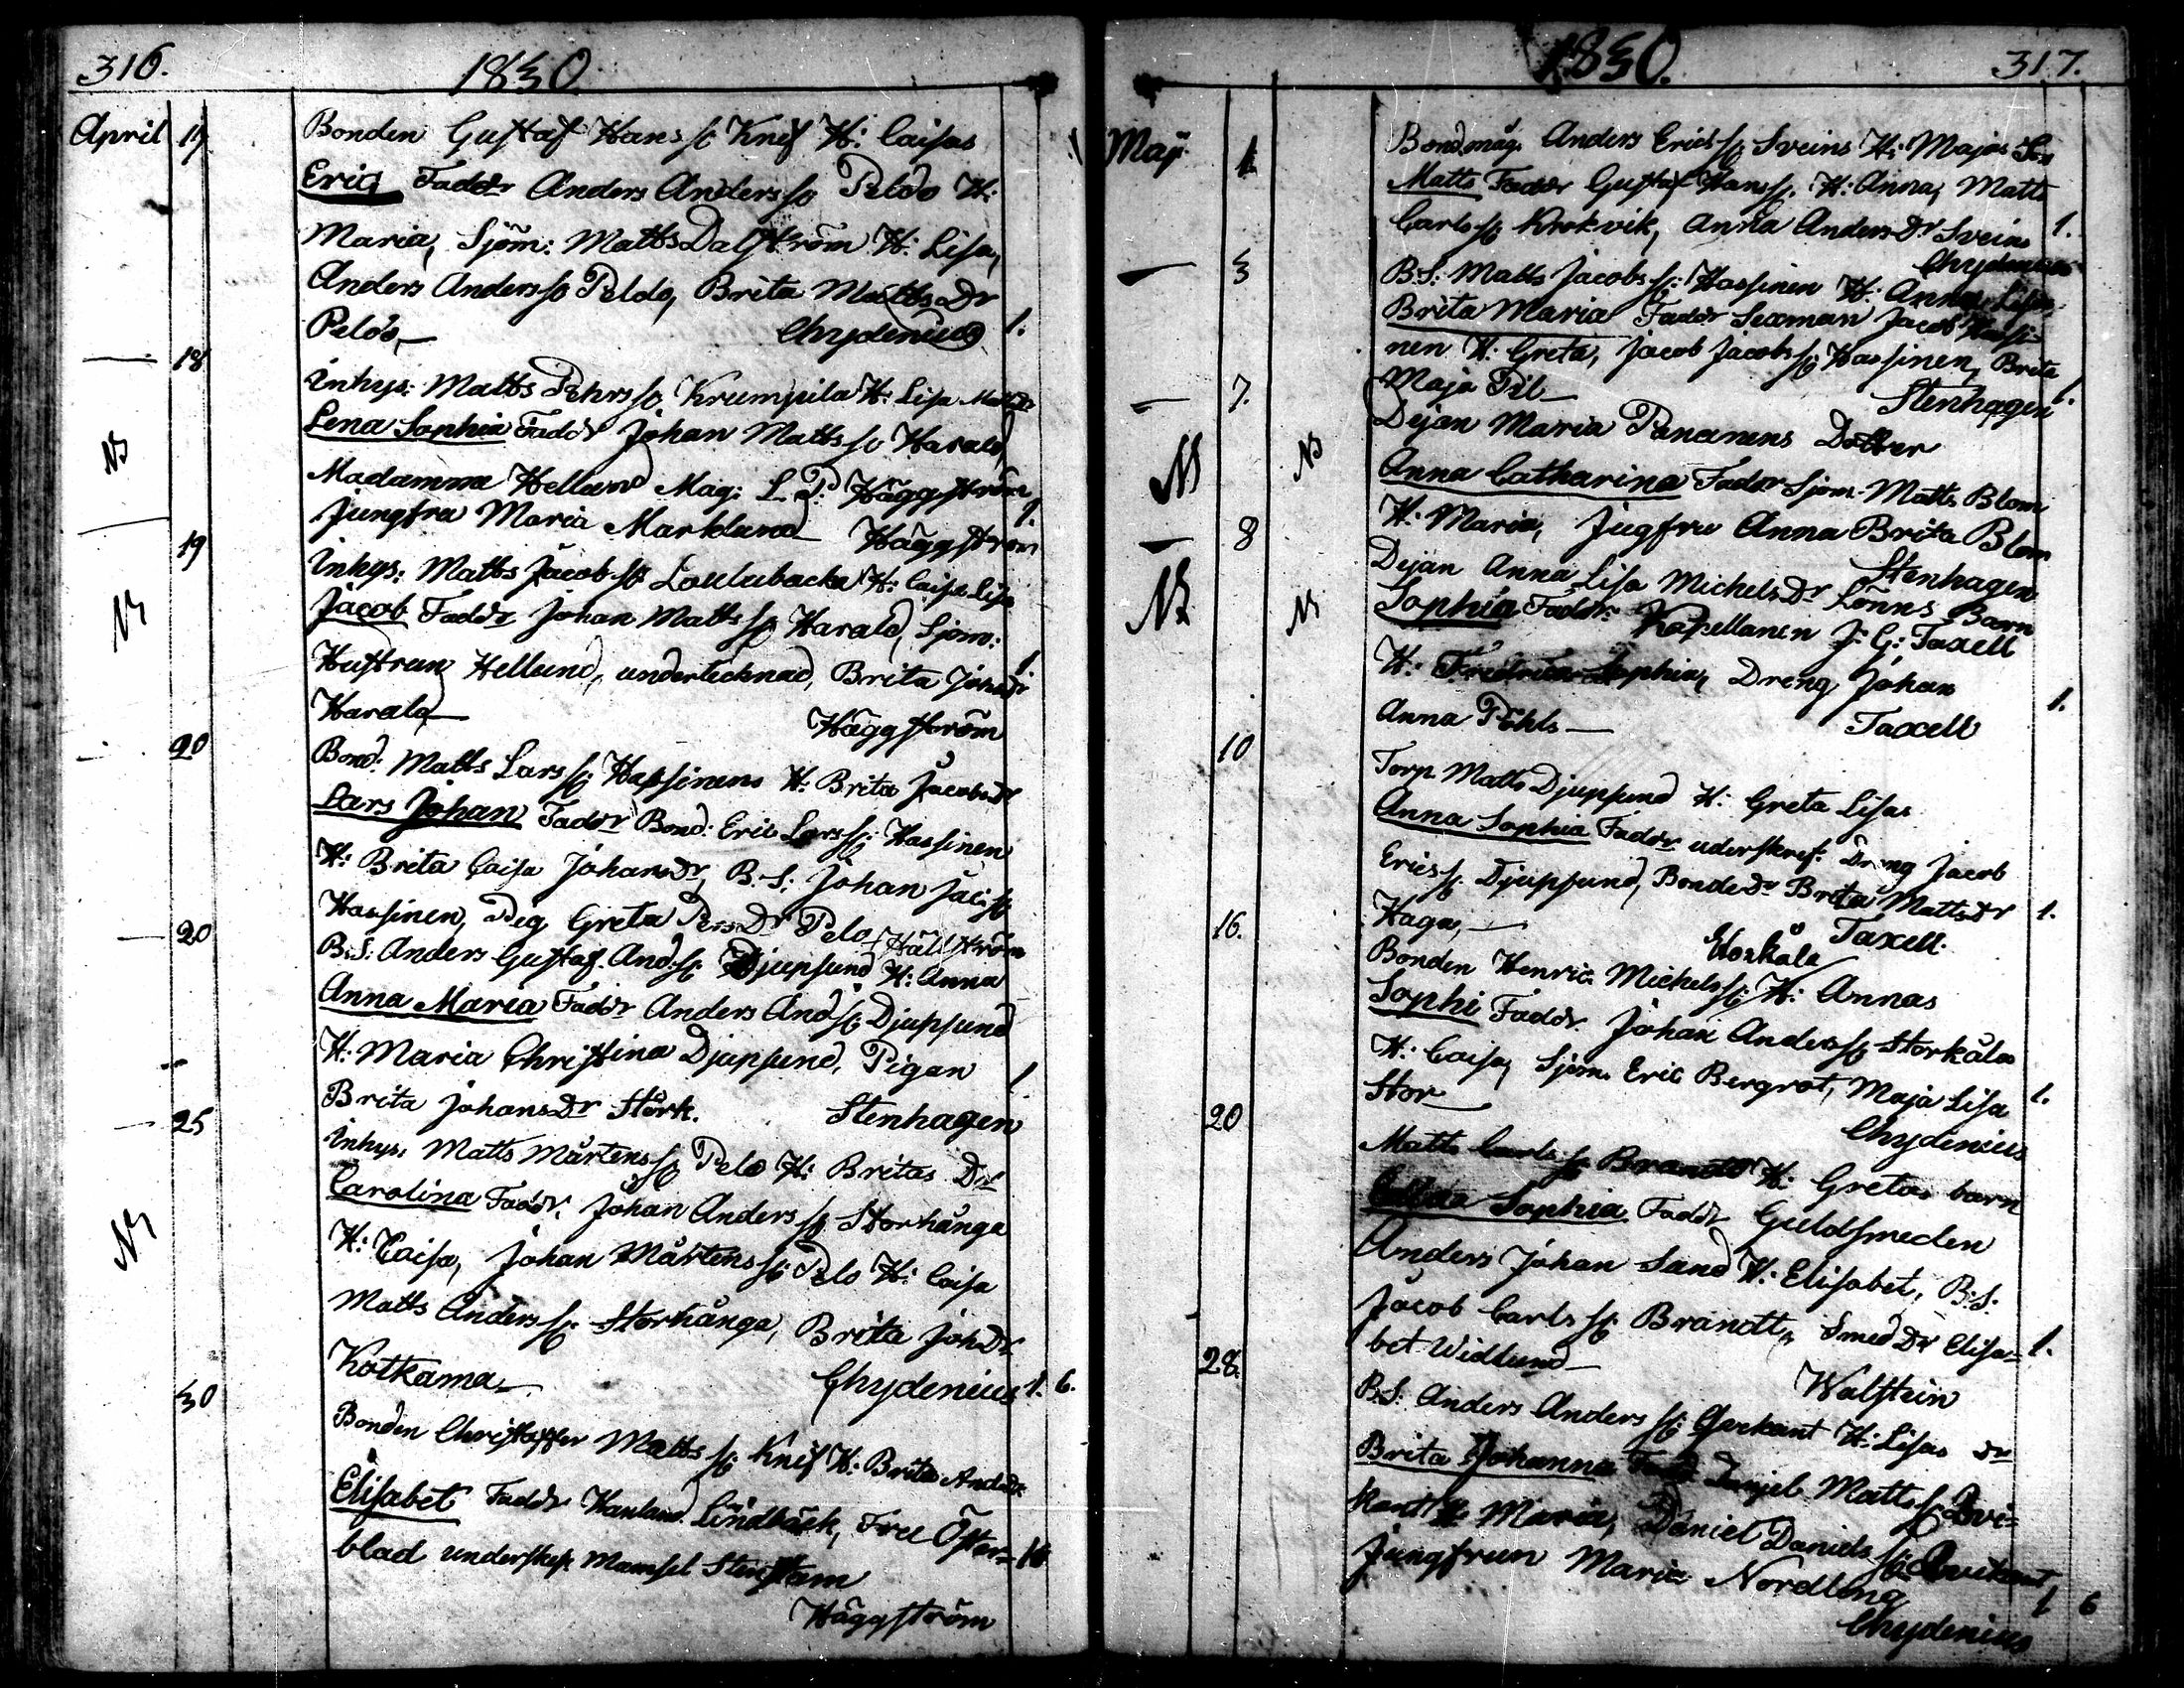 316.
1830.
April 19 Bonden Gustaf Hanss: Knif H: Caisas
Eric Faddr Anders Anderss: Pelos H:
Maria, Sjöm: Matts Dalström H: Lisa,
Anders Anderss: Pelo, Brita Matts Dr
Pelos, Chydenius 1.
— 18 Inhys: Matts Pehrss: Krumpila H: Lisa
NB Lena Sophia Faddr Johan Mattss: Harald,
Madamma Hellund Mag: L. P: Häggström,
Jungfru Maria Markland Häggström 1.
— 19 Inhys: Matts Jacobss: Loulubacka H: Caisa Lisa
NB Jacob Faddr Johan Mattss: Harald, Sjöm:
Hustrun Hellund, undertecknad, Brita Johs Dr 1.
Harald Häggström
— 20 Bond: Matts Larss: Hassinens H: Brita Jacobs Dr
Lars Johan Faddr Bond: Eric Larss: Hassinen
H: Brita Caisa Johans Dr, B. S: Johan Jacss:
Hassinen, Pig Greta Pers Dr Pelo Hällström
— 20 B. S: Anders Gustaf Ands: Djupsund H: Anna
Anna Maria Faddr Anders Ands: Djupsund
H: Maria Christina Djupsund, Pigan 1.
Brita Johans Dr Stork. Stenhagen
— 25 Inhys: Matts Mårtenss: Pelo H: Britas Dr
Carolina Faddr: Johan Anderss: Storhånga
NB H: Caisa, Johan Mårtenss: Pelo H: Caisa
Matts Anderss: Storhånga, Brita Joh Dr
Kotkama Chydenius 1. 6.
30 Bonden Christoffer Mattss: Knif H: Brita Ands Dr
Elisabet Faddr Lindbäck, Fru Öster-
blad underskr: Mamsel Stenstam
Häggström
1830.
317.
Maj 1. Bond. måg. Anders Ericss: Sveins H: Majas Son
Matts Faddr Gustaf Hanss: H: Anna, Matts
Carlss: Krokvik, Anna Anders Dr Sveins 1.
Chydenius
— 3 B. S: Matts Jacobss: Hassinen H: Anna Lisa
Brita Maria Faddr Sexman Jacob Hassi-
nen H: Greta, Jacob Jacobss: Hassinen, Brita
Maja Pil Stenhagen 1.
— 7. Dejan Maria Pananens Dotter
NB NB Anna Catharina Faddr Sjöm. Matts Blom
H: Maria, Jugfru Anna Brita Blom
Stenhagen
— 8 Dejan Anna Lisa Michels Dr Lönns Barn
NB NB Sophia Faddr: Kapellanen J: G: Taxell
H: Fredrika Sophia, Dreng Johan
Anna Pöhls Taxell 1.
10 Torp. Matts Djupsund H: Greta Lisas
Anna Sophia Faddr underskref: Dreng Jacob
Ericss: Djupsund, Bonde Dr Brita Matts Dr 1.
Haga, Taxell.
16. Bonden Henric Michelss: Storkåla H: Annas
Sophi Faddr Johan Anderss: Storkåla
H: Caisa, Sjöm. Eric Bergrot, Maja Lisa 1.
Stor Chydenius
20 Matts Carlss: Brandt H: Gretas barn
Sophia Faddr Guldsmeden
Anders Johan Sand H: Elisabet, B. S:
Jacob Carlss: Brandt, Smed Dr Elisa- 1.
bet Widlund Walstein
28. B. S: Anders Anderss: H: Lisas Dr
Brita Johanna Faddr Danjel Mattss: Qvi-
kant H: Maria, Daniel Danielss: Qvikant
Jungfrun Maria Nordling 1. 6
Chydenius